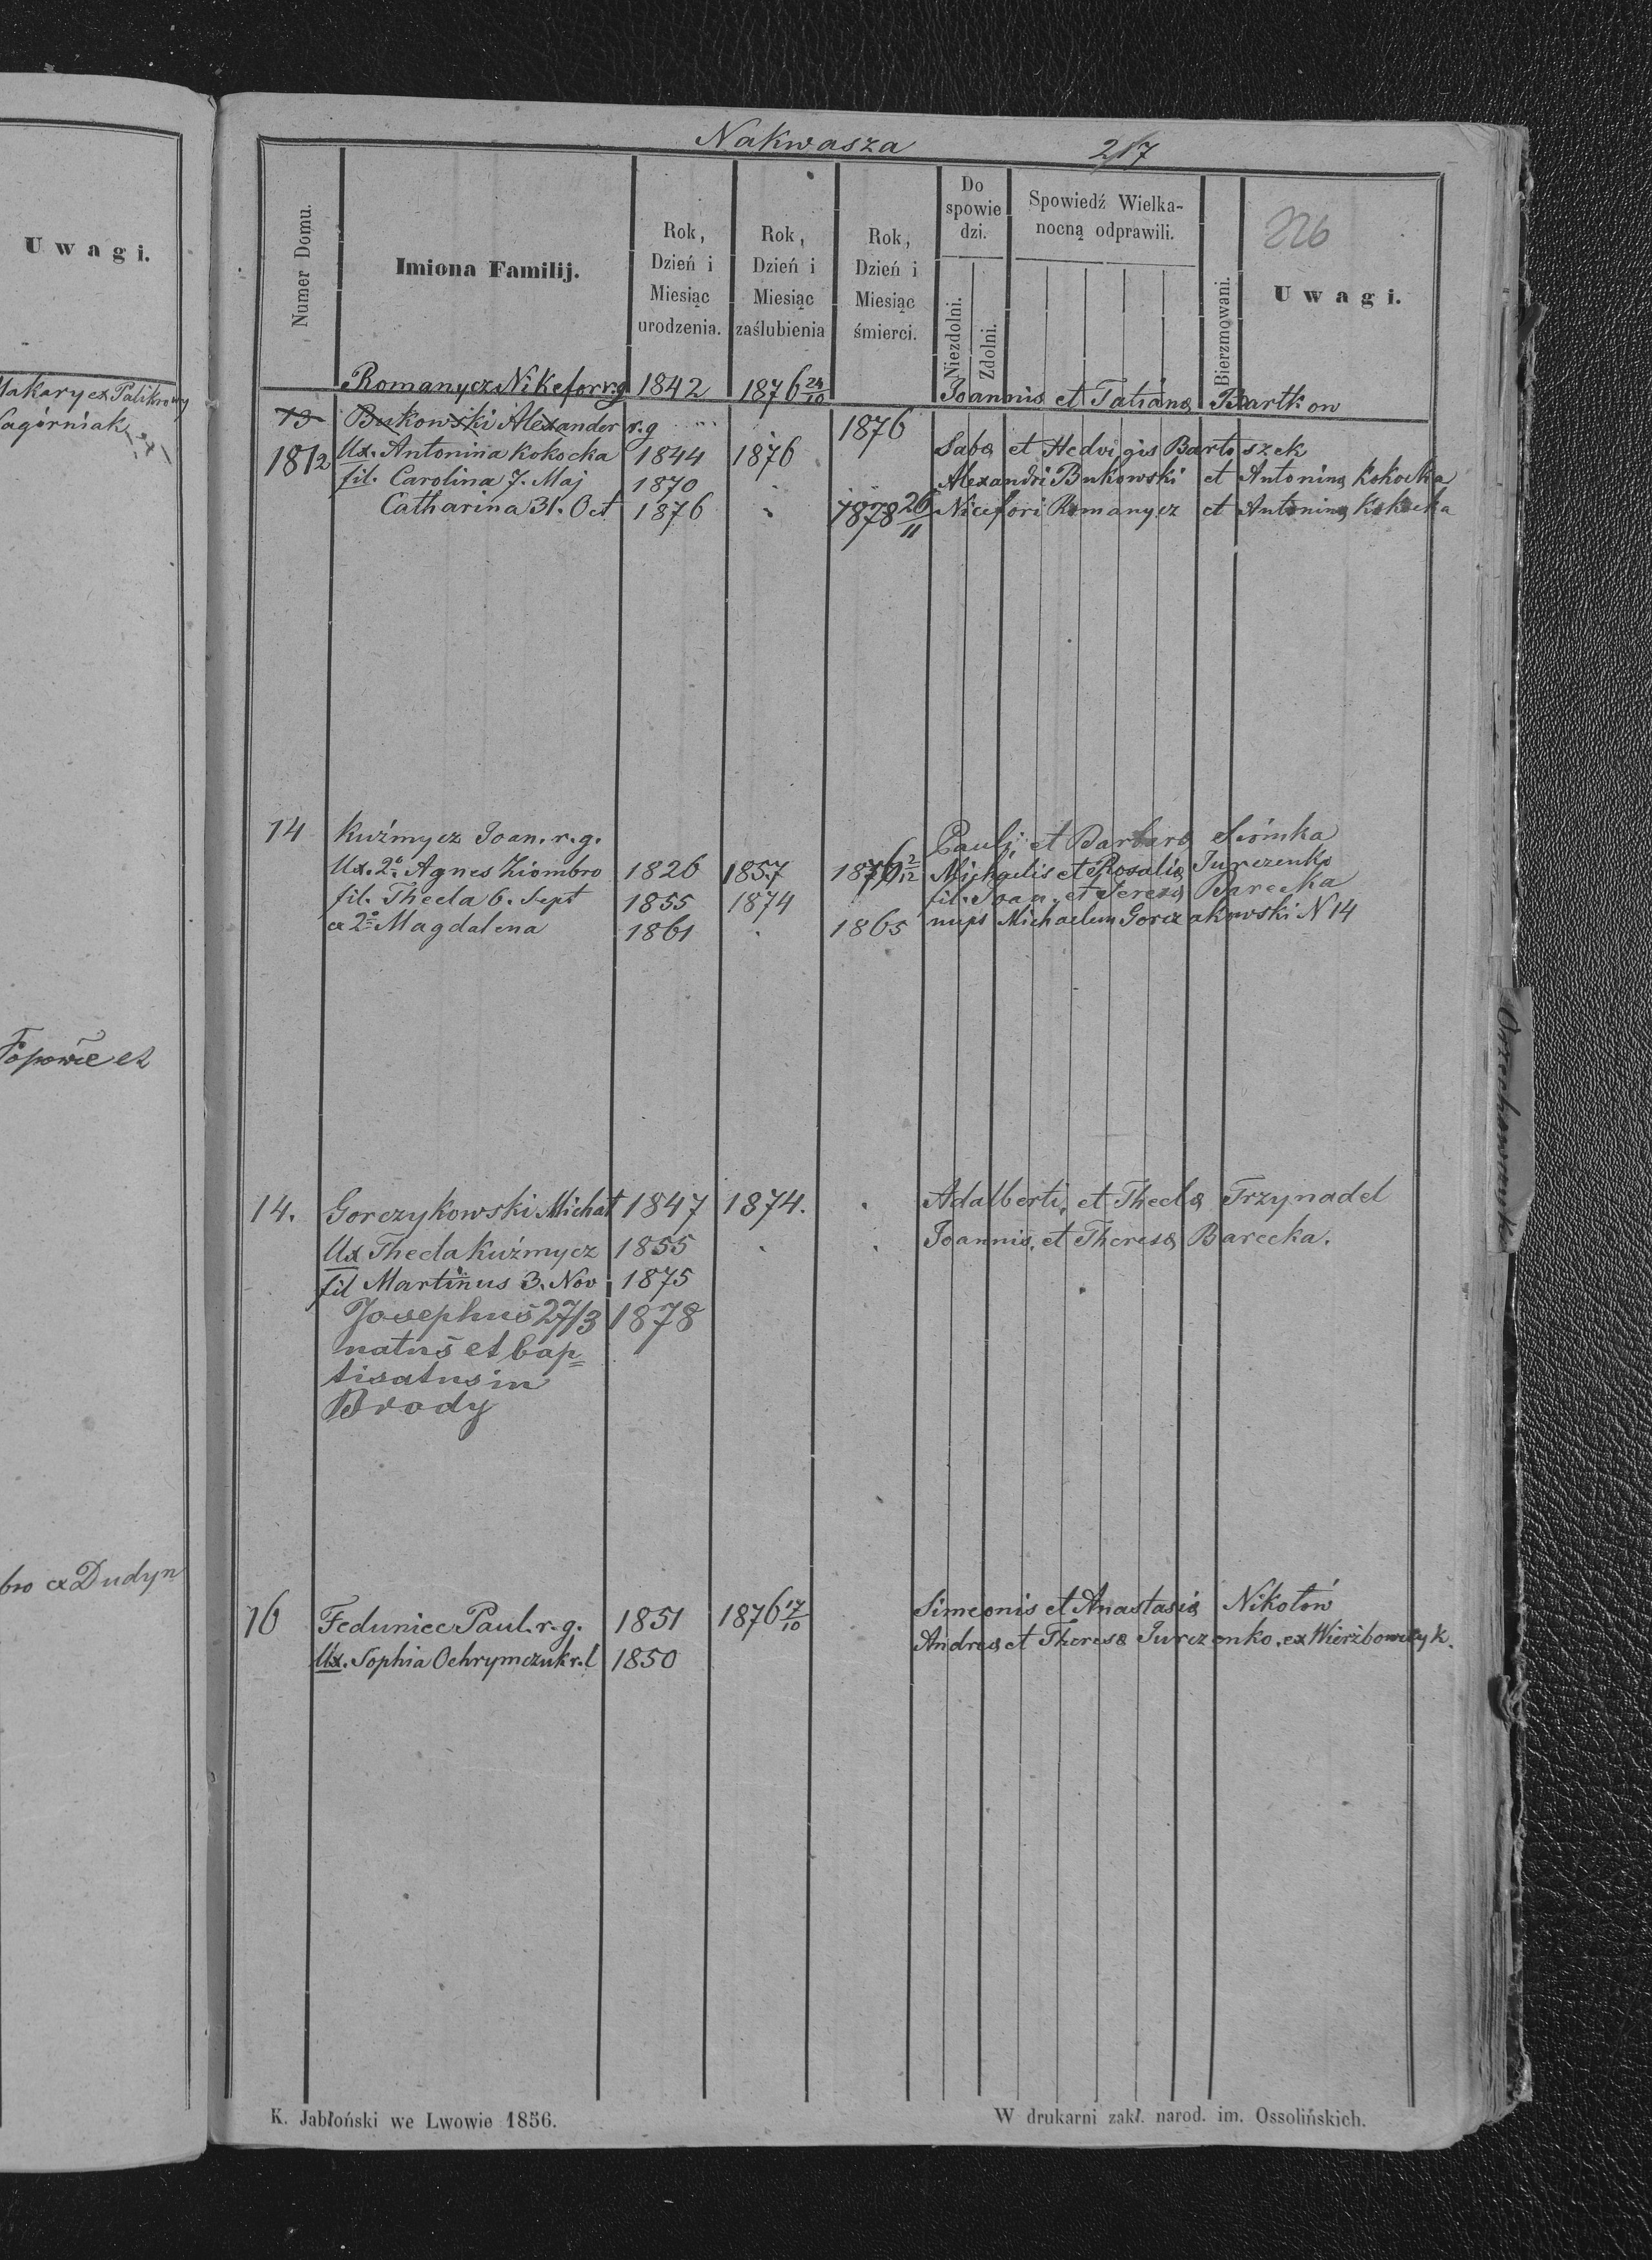 Uwagi.
Makary ex Palikrowy
Zagórniak
Popowce et
bro ex Dudyn
Nakwasza 217
226
Numer Domu.
Imiona Familij.
Rok, Dzień i Miesiąc urodzenia.
Rok, Dzień i Miesiąc zaślubienia
Rok, Dzień i Miesiąc śmierci.
Do spowie dzi.
Niezdolni.
Zdolni.
Spowiedź Wielka-
nocną odprawili.
Bierzmowani.
Uwagi.
Romanycz Nikefor r.g 1842 1876 24/10 Joannis et Tatianæ Bartkow
13 Bukowski Alexander r.g 1876
18/12 Ux. Antonina Kokocka 1844 1876 Sabæ et Hedvigis Bartoszek
fil. Carolina 7. Maj 1870 Alexandri Bukowski et Antoninæ Kokocka
Catharina 31. Oct 1876 1878 26/11 Nicefori Romanycz et Antoninæ Kokocka
14 Kuźmycz Joan. r.g. Pauli et Barbaræ Siomka
Ux. 2º Agnes Ziombro 1826 1857 1876 2/12 Michaelis et Rosaliæ Jurczenko
fil. Thecla 6. Sept 1855 1874 fil. Joan. et Teresæ Barecka
ex 2º Magdalena 1861 1865 nups Michaelem Gorczakowski N 14
14. Gorczykowski Michał 1847 1874. Adalberti et Theclæ Trzynadel
Ux Thecla Kuźmycz 1855 Joannis et Theresæ Barecka.
fil Martinus 3. Nov 1875
Josephus 27/3 1878
natus et bap=
tisatus in
Brody
16 Feduniec Paul. r.g. 1851 1876 17/10 Simeonis et Anastasiæ Nikołów
Ux. Sophia Ochrymczuk r.l 1850 Andreæ et Theresæ Jurczenko. ex Wierzbowczyk.
K. Jabłoński we Lwowie 1856.
W drukarni zakł. narod. im. Ossolińskich.